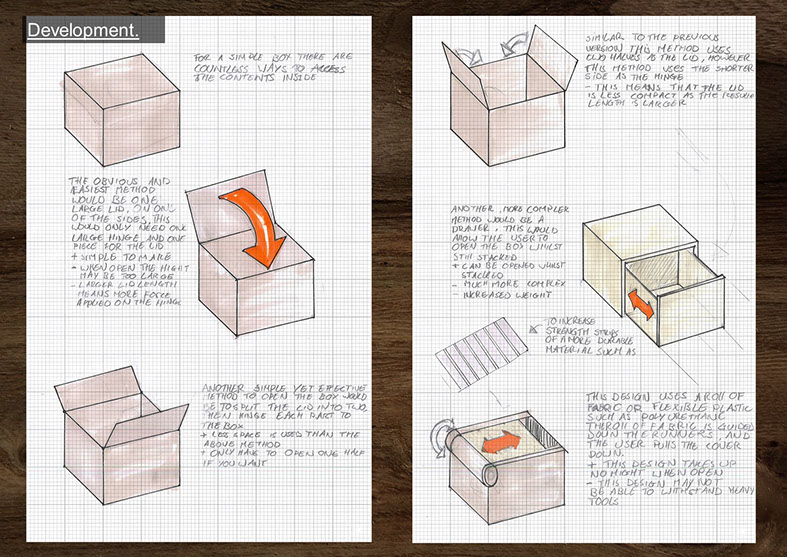 Development.
FOR A SIMPLE BOX THERE ARE
COUNTLESS WAYS TO ACCESS
THE CONTENTS INSIDE
THE OBVIOUS AND
EASIEST METHOD
WOULD BE ONE
LARGE LID, ON ONE
OF THE SIDES, THIS
WOULD ONLY NEED ONE
LARGE HINGE AND ONE
PIECE FOR THE LID
+ SIMPLE TO MAKE
- WHEN OPEN THE HIGHT
MAY BE TOO LARGE
- LARGER LID LENGTH
MEANS MORE FORCE
APPLIED ON THE HINGE
ANOTHER SIMPLE YET EFFECTIVE
METHOD TO OPEN THE BOX WOULD
BE TO SPLIT THE LID INTO TWO,
THEN HINGE EACH PART TO
THE BOX
+ LESS SPACE IS USED THAN THE
ABOVE METHOD
+ ONLY HAVE TO OPEN ONE HALF
IF YOU WANT
SIMILAR TO THE PREVIOUS
VERSION THIS METHOD USES
TWO HALVES AS THE LID, HOWEVER
THIS METHOD USES THE SHORTER
SIDE AS THE HINGE
- THIS MEANS THAT THE LID
IS LESS COMPACT AS THE
LENGTH IS LARGER
ANOTHER, MORE COMPLEX
METHOD WOULD BE A
DRAWER, THIS WOULD
ALLOW THE USER TO
OPEN THE BOX WHILST
STILL STACKED
+ CAN BE OPENED WHILST
STACKED
- MUCH MORE COMPLEX
- INCREASED WEIGHT
TO INCREASE
STRENGTH STRIPS
OF A MORE DURABLE
MATERIAL SUCH AS
THIS DESIGN USES A ROLL OF
FABRIC OR FLEXIBLE PLASTIC
SUCH AS POLYURETHANE
OF FABRIC IS GUIDED
DOWN THE RUNNERS, AND
THE USER PULLS THE COVER
DOWN.
+ THIS DESIGN TAKES UP
NO HIGHT WHEN OPEN
- THIS DESIGN MAY NOT
BE ABLE TO WITHSTAND HEAVY
TOOLS